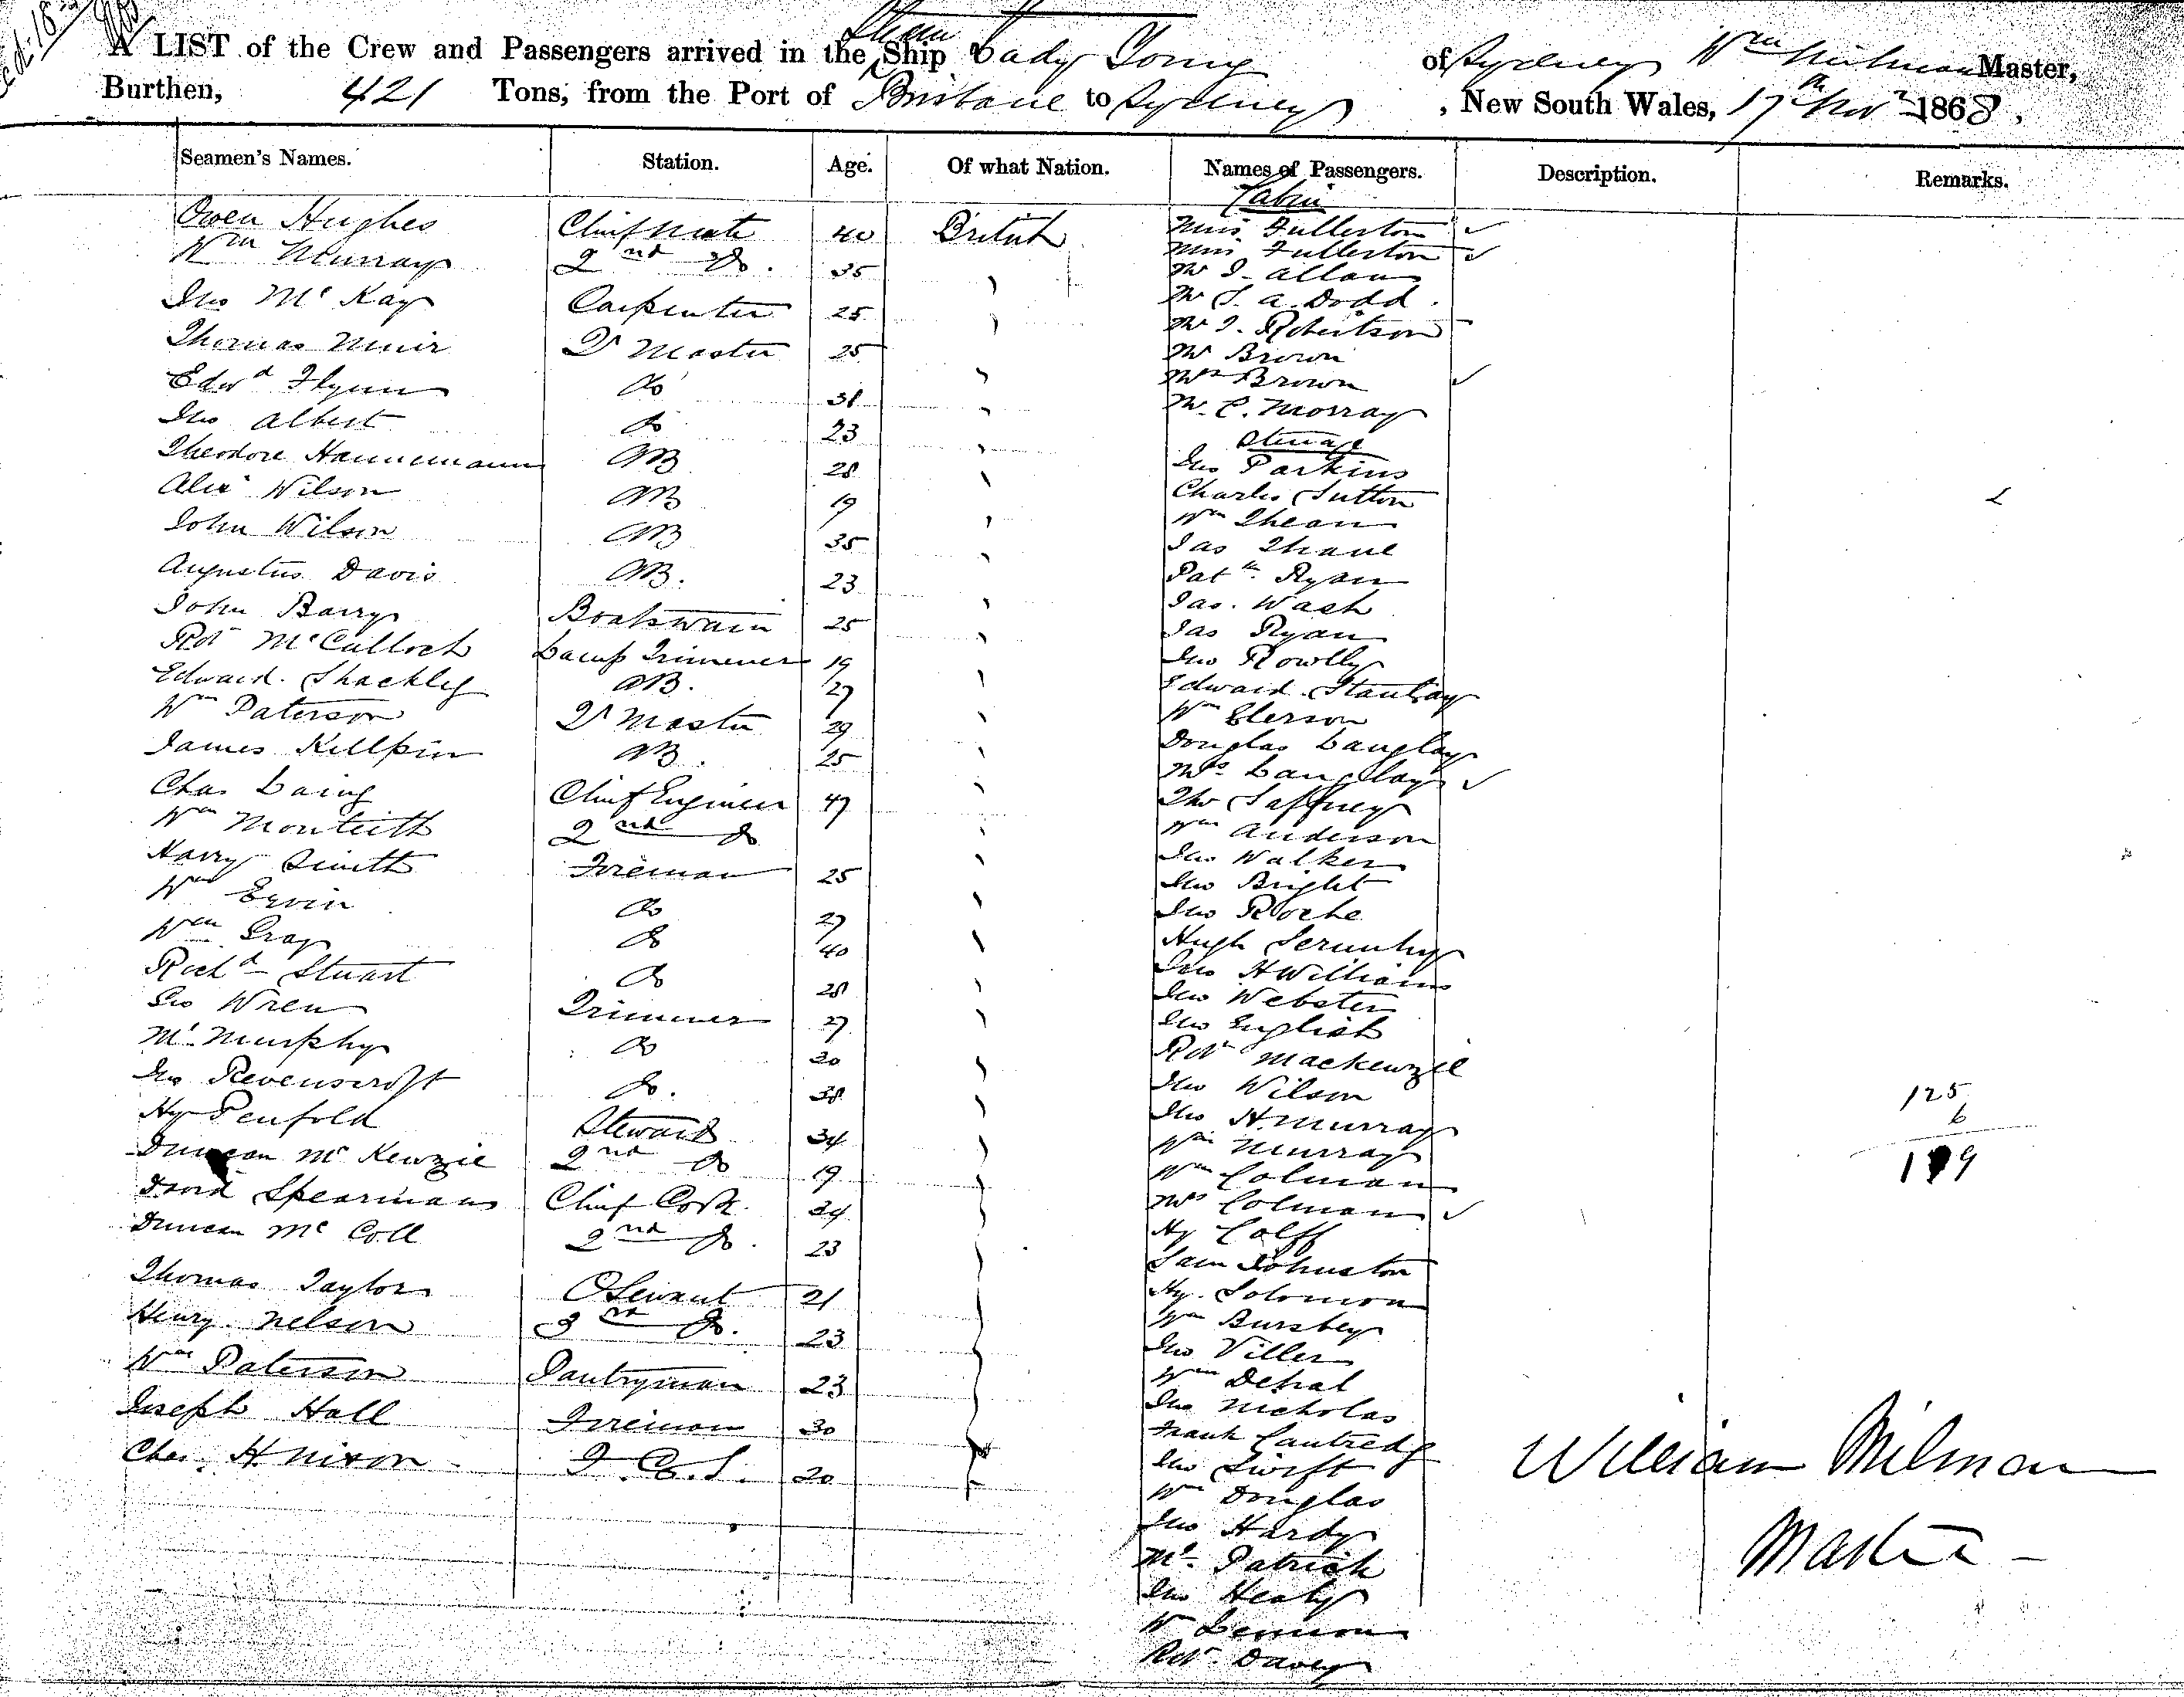 A LIST of the Crew and Passengers arrived in the Steam Ship Lady Young of Sydney Wm Milman Master,
Burthen, 421 Tons, from the Port of Brisbane to Sydney, New South Wales, 17th Novr 1868.
Seamen's Names. Station. Age. Of what Nation. Names of Passengers. Description. Remarks.
Cabin
Owen Hughes Chief Mate 40 British Miss Fullerton
Wm Murray 2nd Do. 35 Miss Fullerton
Mr J. Allan
Jno McKay Carpenter 25 Mr S. A. Dodd
Mr J. Robertson
Thomas Muir Qr Master 25 Mr Brown
Edwd Flynn Do 31 Mrs Brown
Jno Albert Do 23 Mr C. Morray
Steerage
Theodore Hannemann AB 28 Jno Parkins
Alex Wilson AB 19 Charles Sutton
John Wilson AB 35 Wm Thean
Jas Thane
Augustus Davis AB. 23 Patk Ryan
John Barry Boatswain 25 Jas. Wash
Robt McCulloch Lamp Trimmer 19 Jas Ryan
Edward Shackley AB. 27 Jno Rowlly
Wm Paterson Qr Master 29 Edward
James Killpin AB. 25 Wm Elerson
Chas Laing Chief Engineer 47 Douglas Langlay
Wm Monteith 2nd Do Mrs Langlay
Harry Smith Fireman 25 Tho Saffney
Wm Ervin Do 27 Wm Anderson
Wm Gray Do 40 Jno Walker
Richd Stuart Do 28 Jno Bright
Geo Wren Trimmer 27 Jno Roche
Ml Murphy Do 30 Hugh
Jno Revenscroft Do. 38 Jno H Williams
Hy Penfold Steward 34 Jno Webster
Duncan McKenzie 2nd Do 19 Jno English
David Spearman Chief Cook 34 Robt Mackenzie
Duncan McColl 2nd Do. 23 Jno Wilson
Thomas Taylor 21 Jno H. Murray
Henry Nelson 3rd Do. 23 Wm Murray
Wm Paterson Pantryman 23 Wm Colman
Joseph Hall Fireman 30 Mrs Colman
Chas. H Nixon 20 Hy Colff
Sam Johnston
Hy. Solomon
Wm Bursbey
Jno Viller
Wm
Jno Nicholas
Frank
Jno Swift
Wm Douglas
Jno Hardy
Ml Patrick
Jno Healy
W
Robt Davey
125
6
119
William Milman
Master